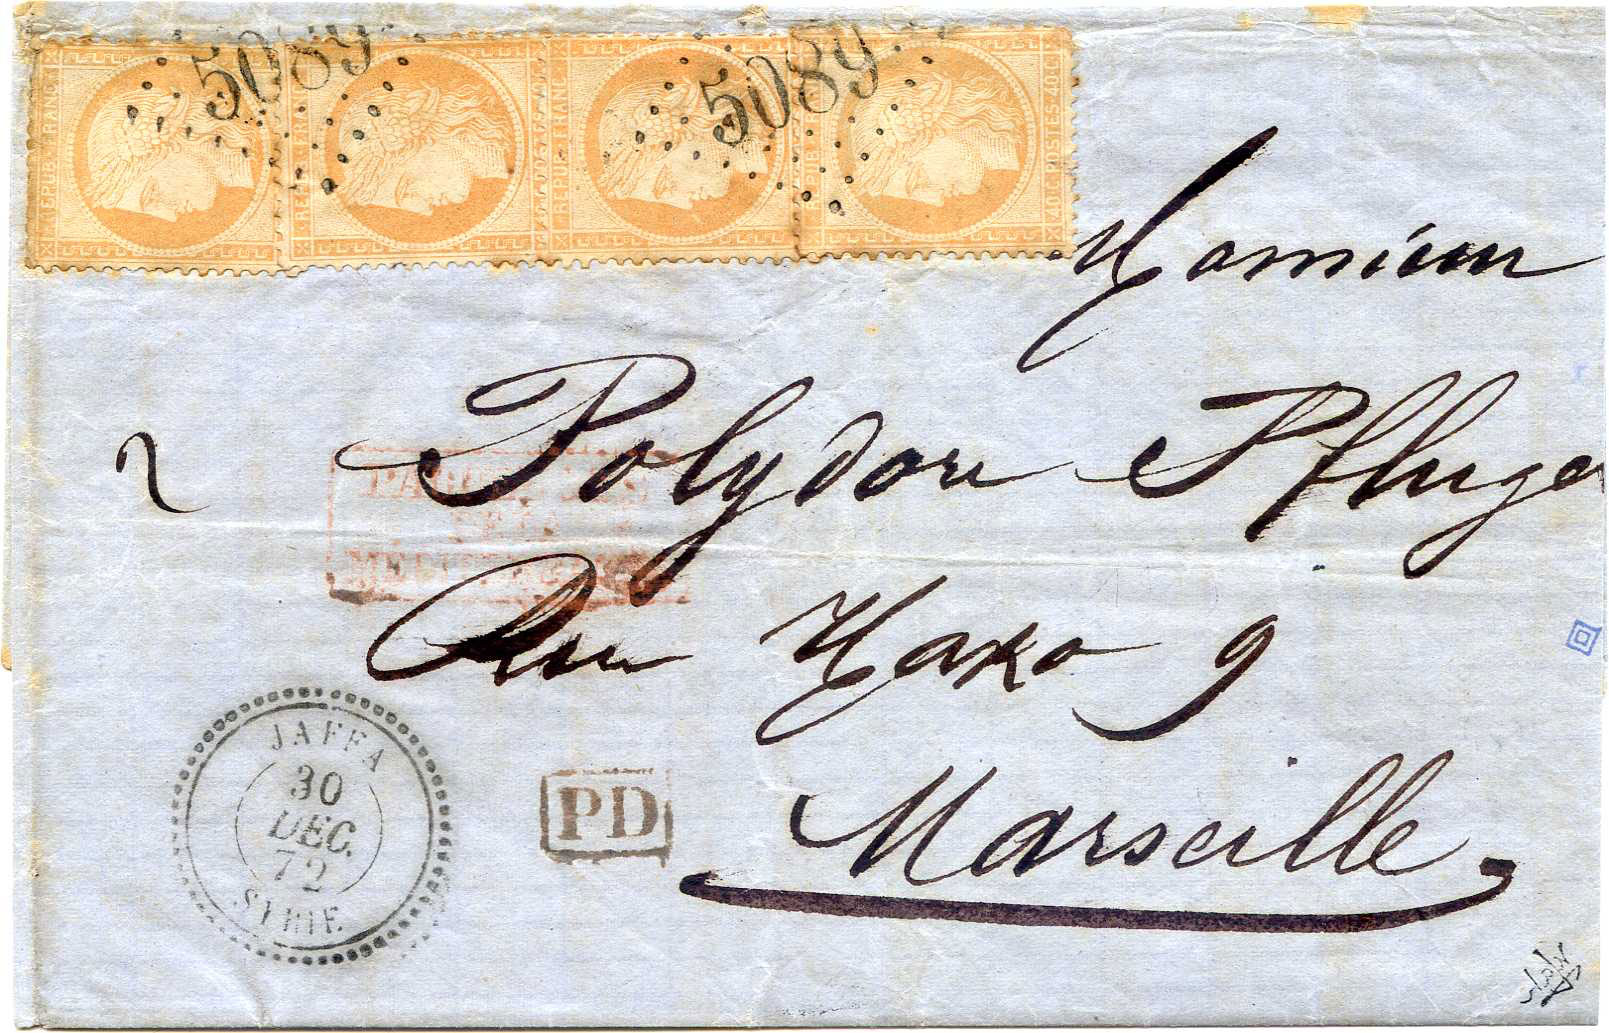 5089
5089
REPUB. FRANC.
REPUB. FRANC.
REPUB. FRANC.
REPUB
40 C. POSTES 40 C.
Monsieur
Polydore Pfluger
Rue Haxo 9
Marseille
2
PAQUEBOTS
MEDITERRANEE
JAFFA
30
DEC.
72
SYRIE
PD